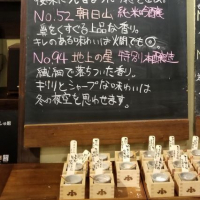 No.52 朝日山 純米吟醸
鼻をくすぐる上品な香り。
キレのある味わいは燗でも◎。
No.94 地上の星 特別本醸造
繊細で落ちついた香り。
ギリリとシャープな味わいは
冬の夜空を思わせます。